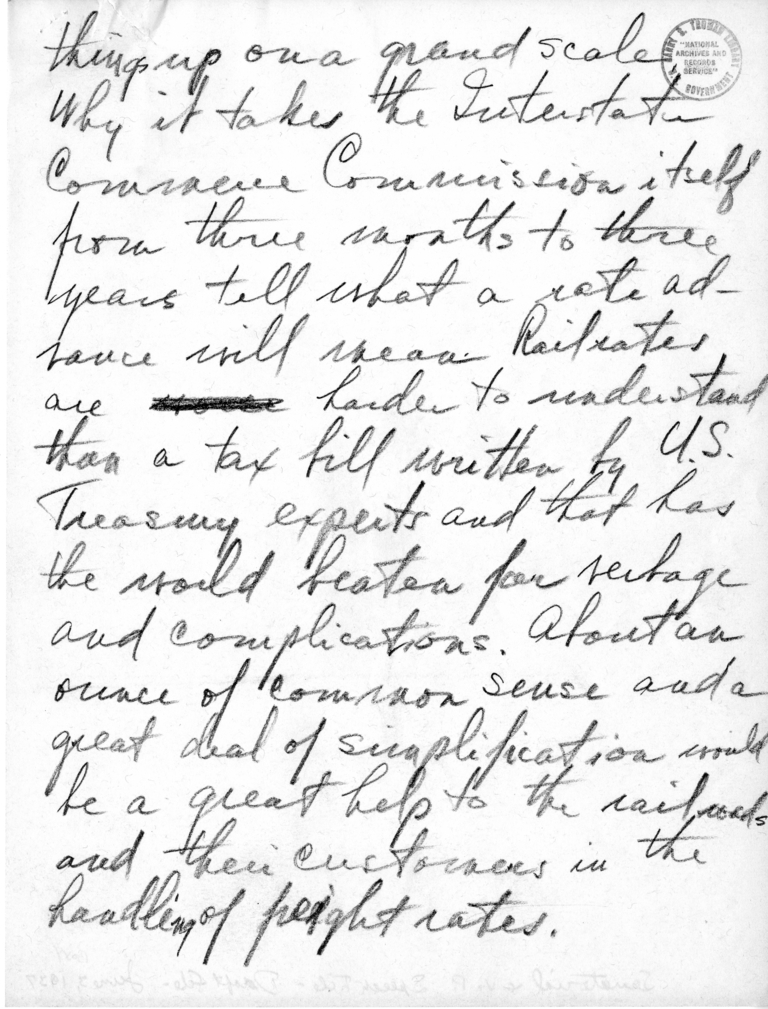 things up on a grand scale.
Why it takes the Interstate
Commerce Commission itself
from three months to three
years tell what a rate ad-
vance will mean. Rail rates
are harder to understand
than a tax bill written by U.S.
Treasury experts and that has
the world beaten for verbage
and complications. About an
ounce of common sense and a
great deal of simplification would
be a great help to the railroads
and their customers in the
handling of freight rates.
HARRY S. TRUMAN LIBRARY
"NATIONAL
ARCHIVES AND
RECORDS
SERVICE"
U.S. GOVERNMENT